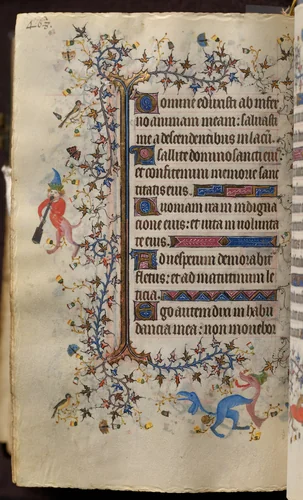 463.
Domine eduxisti ab infer
no animam meam: saluasti
me a descendentibus in lacū.
Psallite domino sancti eius
et confitemini memorie sanc
titatis eius.
Quoniam ira in indigna
cione eius: et uita in uolunta
te eius.
Ad uesperum demorabit᷑
fletus: et ad matutinum le
ticia.
Ego autem dixi in habū
dancia mea: non mouebor